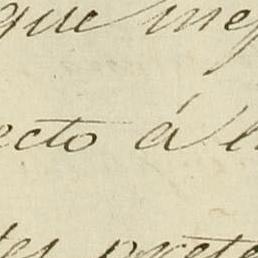 que me
ecto á l
tes prete